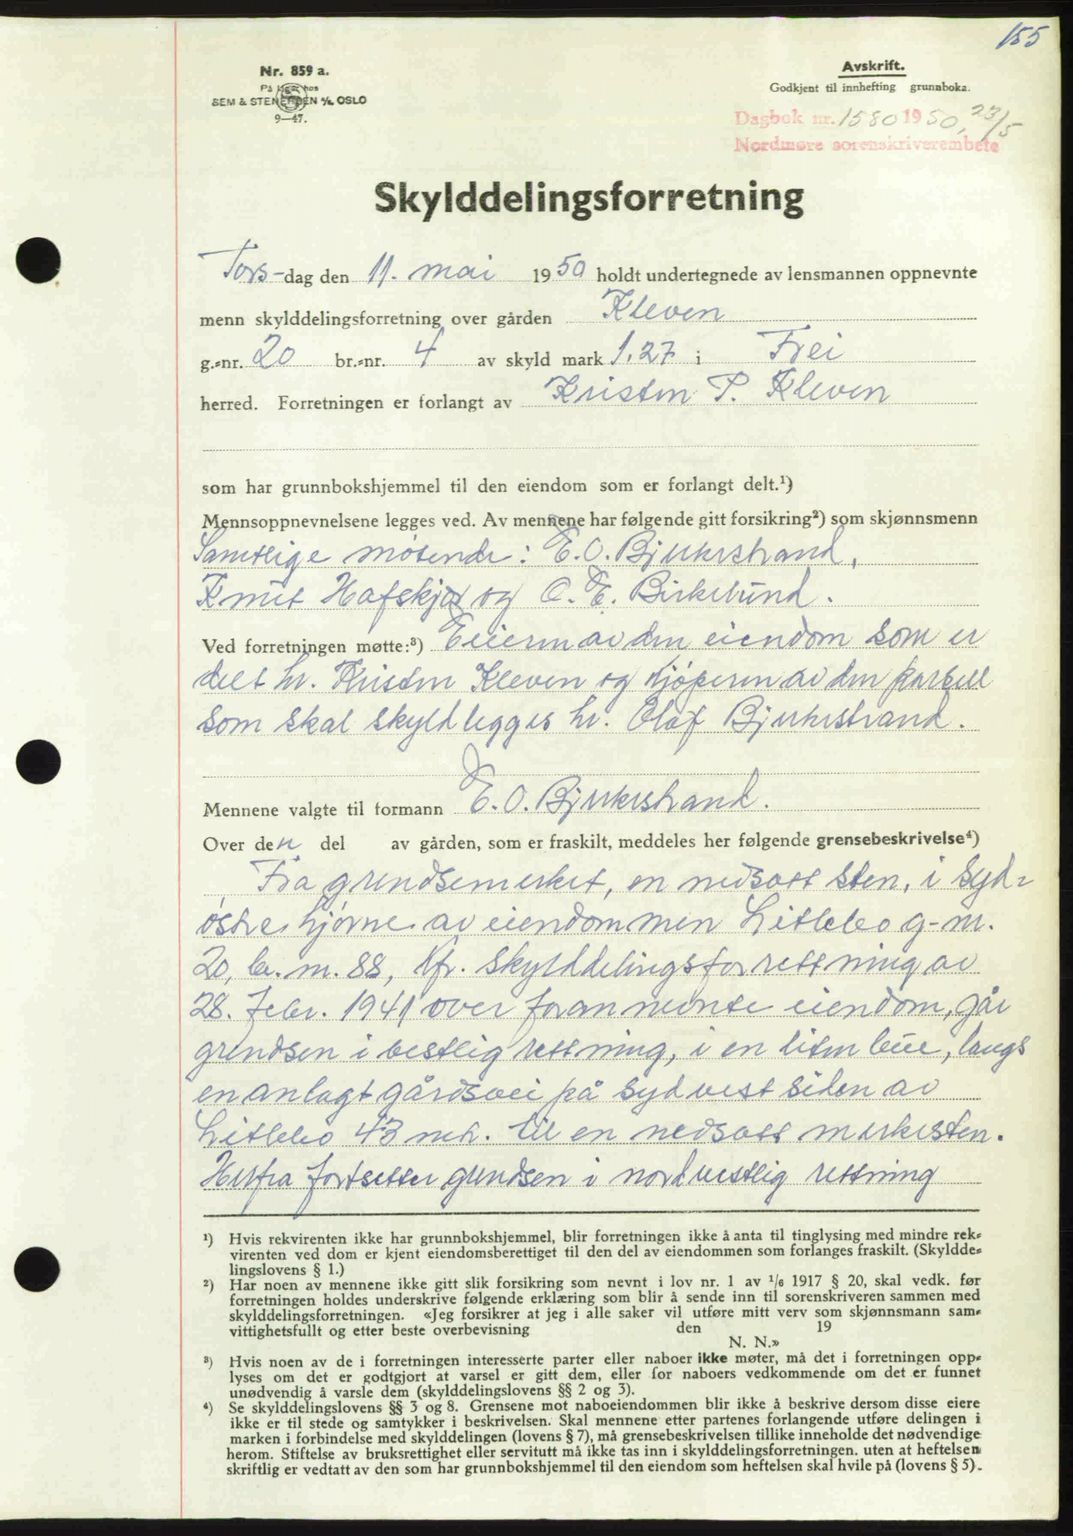 155
Nr. 859 a.
På lager hos
SEM & STENERSEN A/S, OSLO
9—47.
Avskrift.
Godkjent til innhefting grunnboka.
Dagbok nr. 1580 1950, 23/5
Nordmøre sorenskriverembete
Skylddelingsforretning
Tors-dag den 11. mai 1950 holdt undertegnede av lensmannen oppnevnte
menn skylddelingsforretning over gården Kleven
g.-nr. 20 br.-nr. 4 av skyld mark 1.27 i Frei
herred. Forretningen er forlangt av Kristen P. Kleven
som har grunnbokshjemmel til den eiendom som er forlangt delt.¹)
Mennsoppnevnelsene legges ved. Av mennene har følgende gitt forsikring²) som skjønnsmenn
Samtlige møtende: E. O. Bjerkestrand,
Knut Hafskjær og O. E. Birkelund.
Ved forretningen møtte:³) Eieren av den eiendom som er
delt hr. Kristen Kleven og kjøperen av den parsell
som skal skyldlegges hr. Olaf Bjerkestrand.
Mennene valgte til formann E. O. Bjerkestrand.
Over den del av gården, som er fraskilt, meddeles her følgende grensebeskrivelse⁴)
Fra grendsemerket, en nedsatt sten, i Syd-
østre hjørne av eiendommen Litlebo g-nr.
20, br. nr. 88, kfr. skylddelingsforrettning av
28. Febr. 1941 over forannevnte eiendom, går
grendsen i vestlig rettning, i en liten bue, langs
en anlagt gårdsvei på sydvest siden av
Litlebo 43 mtr. til en nedsatt merkesten.
Herfra fortsetter grendsen i nordvestlig rettning
¹) Hvis rekvirenten ikke har grunnbokshjemmel, blir forretningen ikke å anta til tinglysing med mindre rek-
virenten ved dom er kjent eiendomsberettiget til den del av eiendommen som forlanges fraskilt. (Skyldde-
lingslovens § 1.)
²) Har noen av mennene ikke gitt slik forsikring som nevnt i lov nr. 1 av 1/6 1917 § 20, skal vedk. før
forretningen holdes underskrive følgende erklæring som blir å sende inn til sorenskriveren sammen med
skylddelingsforretningen. «Jeg forsikrer at jeg i alle saker vil utføre mitt verv som skjønnsmann sam-
vittighetsfullt og etter beste overbevisning den 19
N. N.»
³) Hvis noen av de i forretningen interesserte parter eller naboer ikke møter, må det i forretningen opp-
lyses om det er godtgjort at varsel er gitt dem, eller for naboers vedkommende om det er funnet
unødvendig å varsle dem (skylddelingslovens §§ 2 og 3).
⁴) Se skylddelingslovens §§ 3 og 8. Grensene mot naboeiendommen blir ikke å beskrive dersom disse eiere
ikke er til stede og samtykker i beskrivelsen. Skal mennene etter partenes forlangende utføre delingen i
marken i forbindelse med skylddelingen (lovens § 7), må grensebeskrivelsen tillike inneholde det nødvendige
herom. Stiftelse av bruksrettighet eller servitutt må ikke tas inn i skylddelingsforretningen, uten at heftelsen
skriftlig er vedtatt av den som har grunnbokshjemmel til den eiendom som heftelsen skal hvile på (lovens § 5).